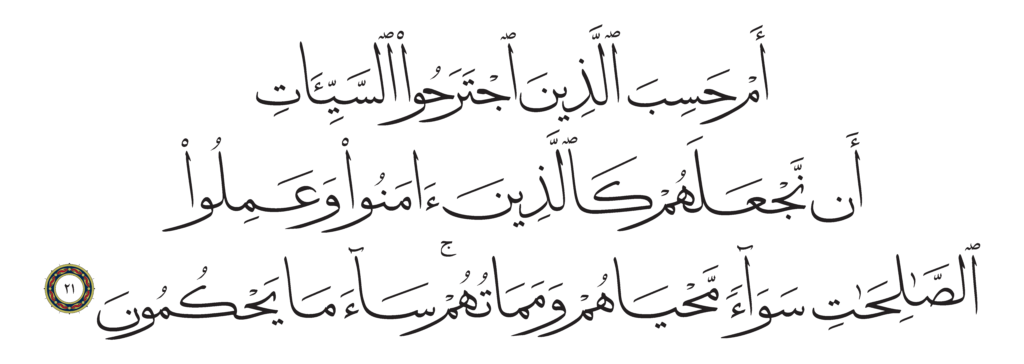 أَمْ حَسِبَ ٱلَّذِينَ ٱجْتَرَحُوا۟ ٱلسَّيِّـَٔاتِ
أَن نَّجْعَلَهُمْ كَٱلَّذِينَ ءَامَنُوا۟ وَعَمِلُوا۟
ٱلصَّـٰلِحَـٰتِ سَوَآءً مَّحْيَاهُمْ وَمَمَاتُهُمْ ۚ سَآءَ مَا يَحْكُمُونَ ٢١